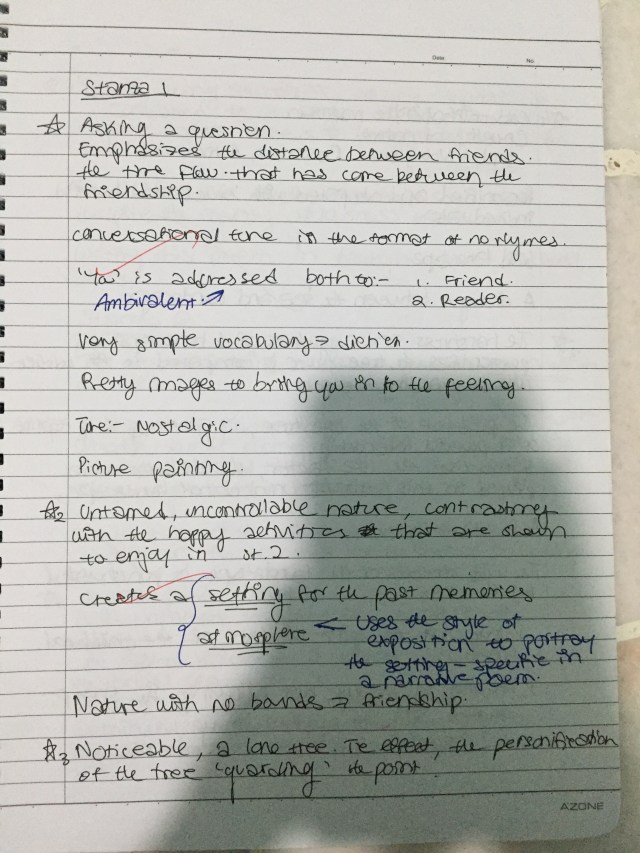 Date:
No.
Stanza 1
☆ Asking a question.
Emphasizes the distance between friends.
the time flow. that has come between the
friendship.
conversational tone in the format of no rhymes.
'You' is addressed both to:- 1. Friend.
Ambivalent:→ 2. Reader.
very simple vocabulary → diction.
Pretty images to bring you in to the feeling.
Tone:- Nostalgic.
Picture painting.
☆2 Untamed, uncontrollable nature, contrasting
with the happy activities that are shown
to enjoy in st. 2.
creates a { setting for the past memories
atmosphere ← Uses the style of
exposition to portray
the setting - specific in
a narrative poem.
Nature with no bounds → friendship.
☆3 Noticeable, a lone tree. The effect, the personification
of the tree 'guarding' the point.
AZONE